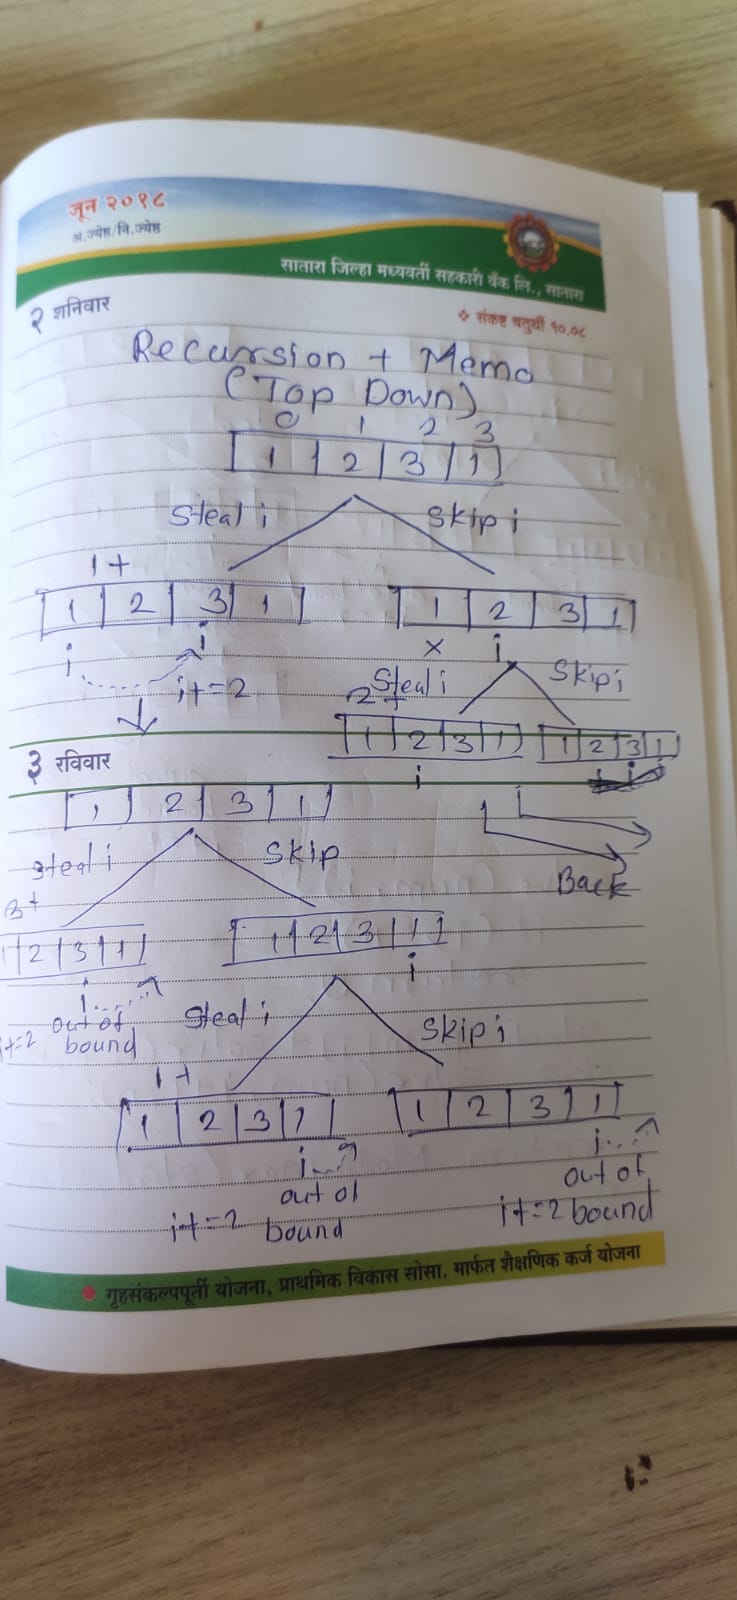 जून २०१८
अ.ज्येष्ठ/नि.ज्येष्ठ
सातारा जिल्हा मध्यवर्ती सहकारी बँक लि., सातारा
२ शनिवार
❖ संकष्ट चतुर्थी १०.०८
Recursion + Memo
(Top Down)
0 1 2 3
1 2 3 1
Steal i Skip i
1+
1 2 3 1 1 2 3 1
i i x i
i+=2 Steal i Skip i
2+
1 2 3 1 1 2 3 1
i
३ रविवार
1 2 3 1
Steal i Skip
Back
3+
1 2 3 1 1 2 3 1
i i
i+=2 out of bound
Steal i Skip i
1+
1 2 3 1 1 2 3 1
i i
i+=2 out of bound
i+=2 out of bound
गृहसंकल्पपूर्ती योजना, प्राथमिक विकास सोसा. मार्फत शैक्षणिक कर्ज योजना